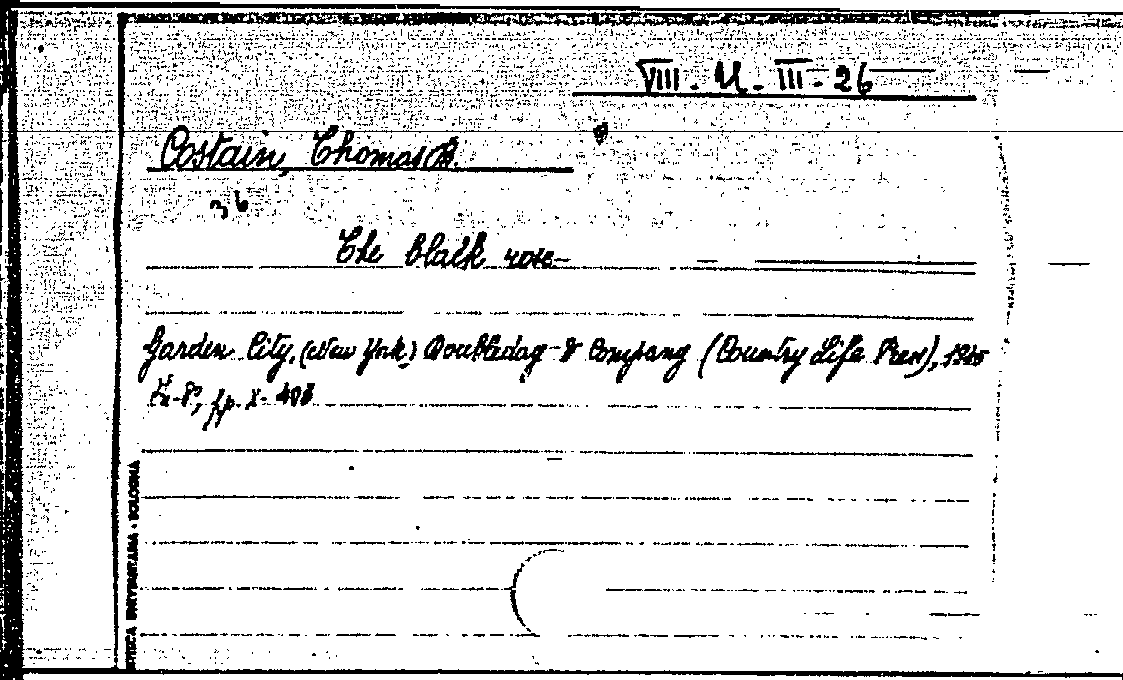 VIII - U - III - 26
Costain, Thomas B.
36
The black rose
Garden City, (New York) Doubleday & Company (Country Life Press), 1945
in-8°, pp. X-403
UNIVERSITARIA • BOLOGNA